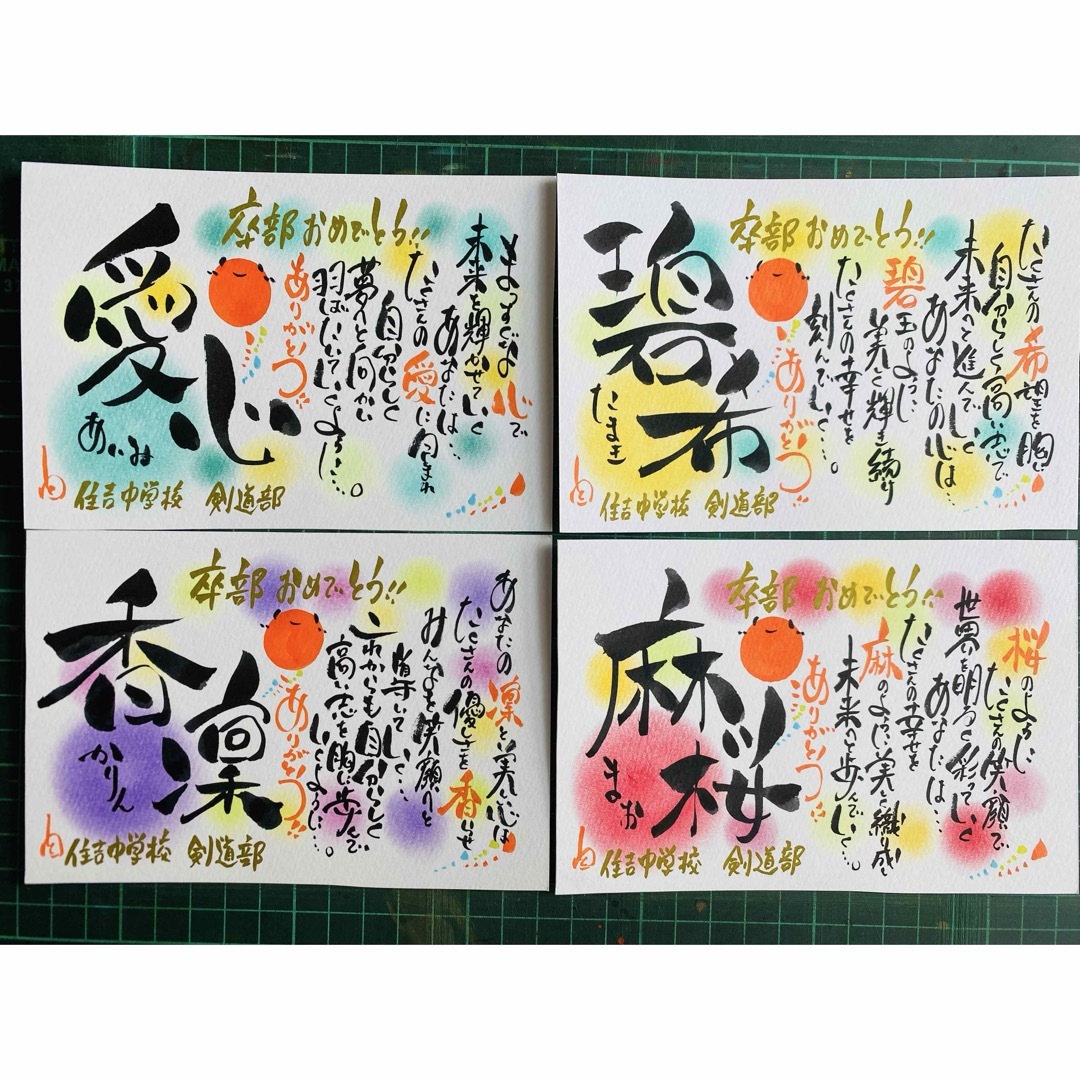 卒部おめでとう!!
愛心
あいみ
まっすぐな心で
未来を輝かせていく
あなたは…
たくさんの愛に包まれ
自分らしく
夢へと向かい
羽ばたいていくように…。
ありがとう!!
住吉中学校 剣道部
卒部おめでとう!!
碧希
たまき
たくさんの希望を胸に
自分らしく高い志で
未来へと進んでいく
あなたの心は…
碧玉のように
美しく輝き続け
たくさんの幸せを
刻んでいく…。
ありがとう!!
住吉中学校 剣道部
卒部おめでとう!!
香凛
かりん
あなたの凛と美しい心は
たくさんの優しさを香らせ
みんなを笑顔へと
導いていく…
これからも自分らしく
高い志を胸に歩んで
いくように…。
ありがとう!!
住吉中学校 剣道部
卒部おめでとう!!
麻桜
まお
桜のように
たくさんの笑顔で
世界を明るく彩っていく
あなたは…
たくさんの幸せを
麻のように美しく織成し
未来へと歩んでいく…。
ありがとう!!
住吉中学校 剣道部